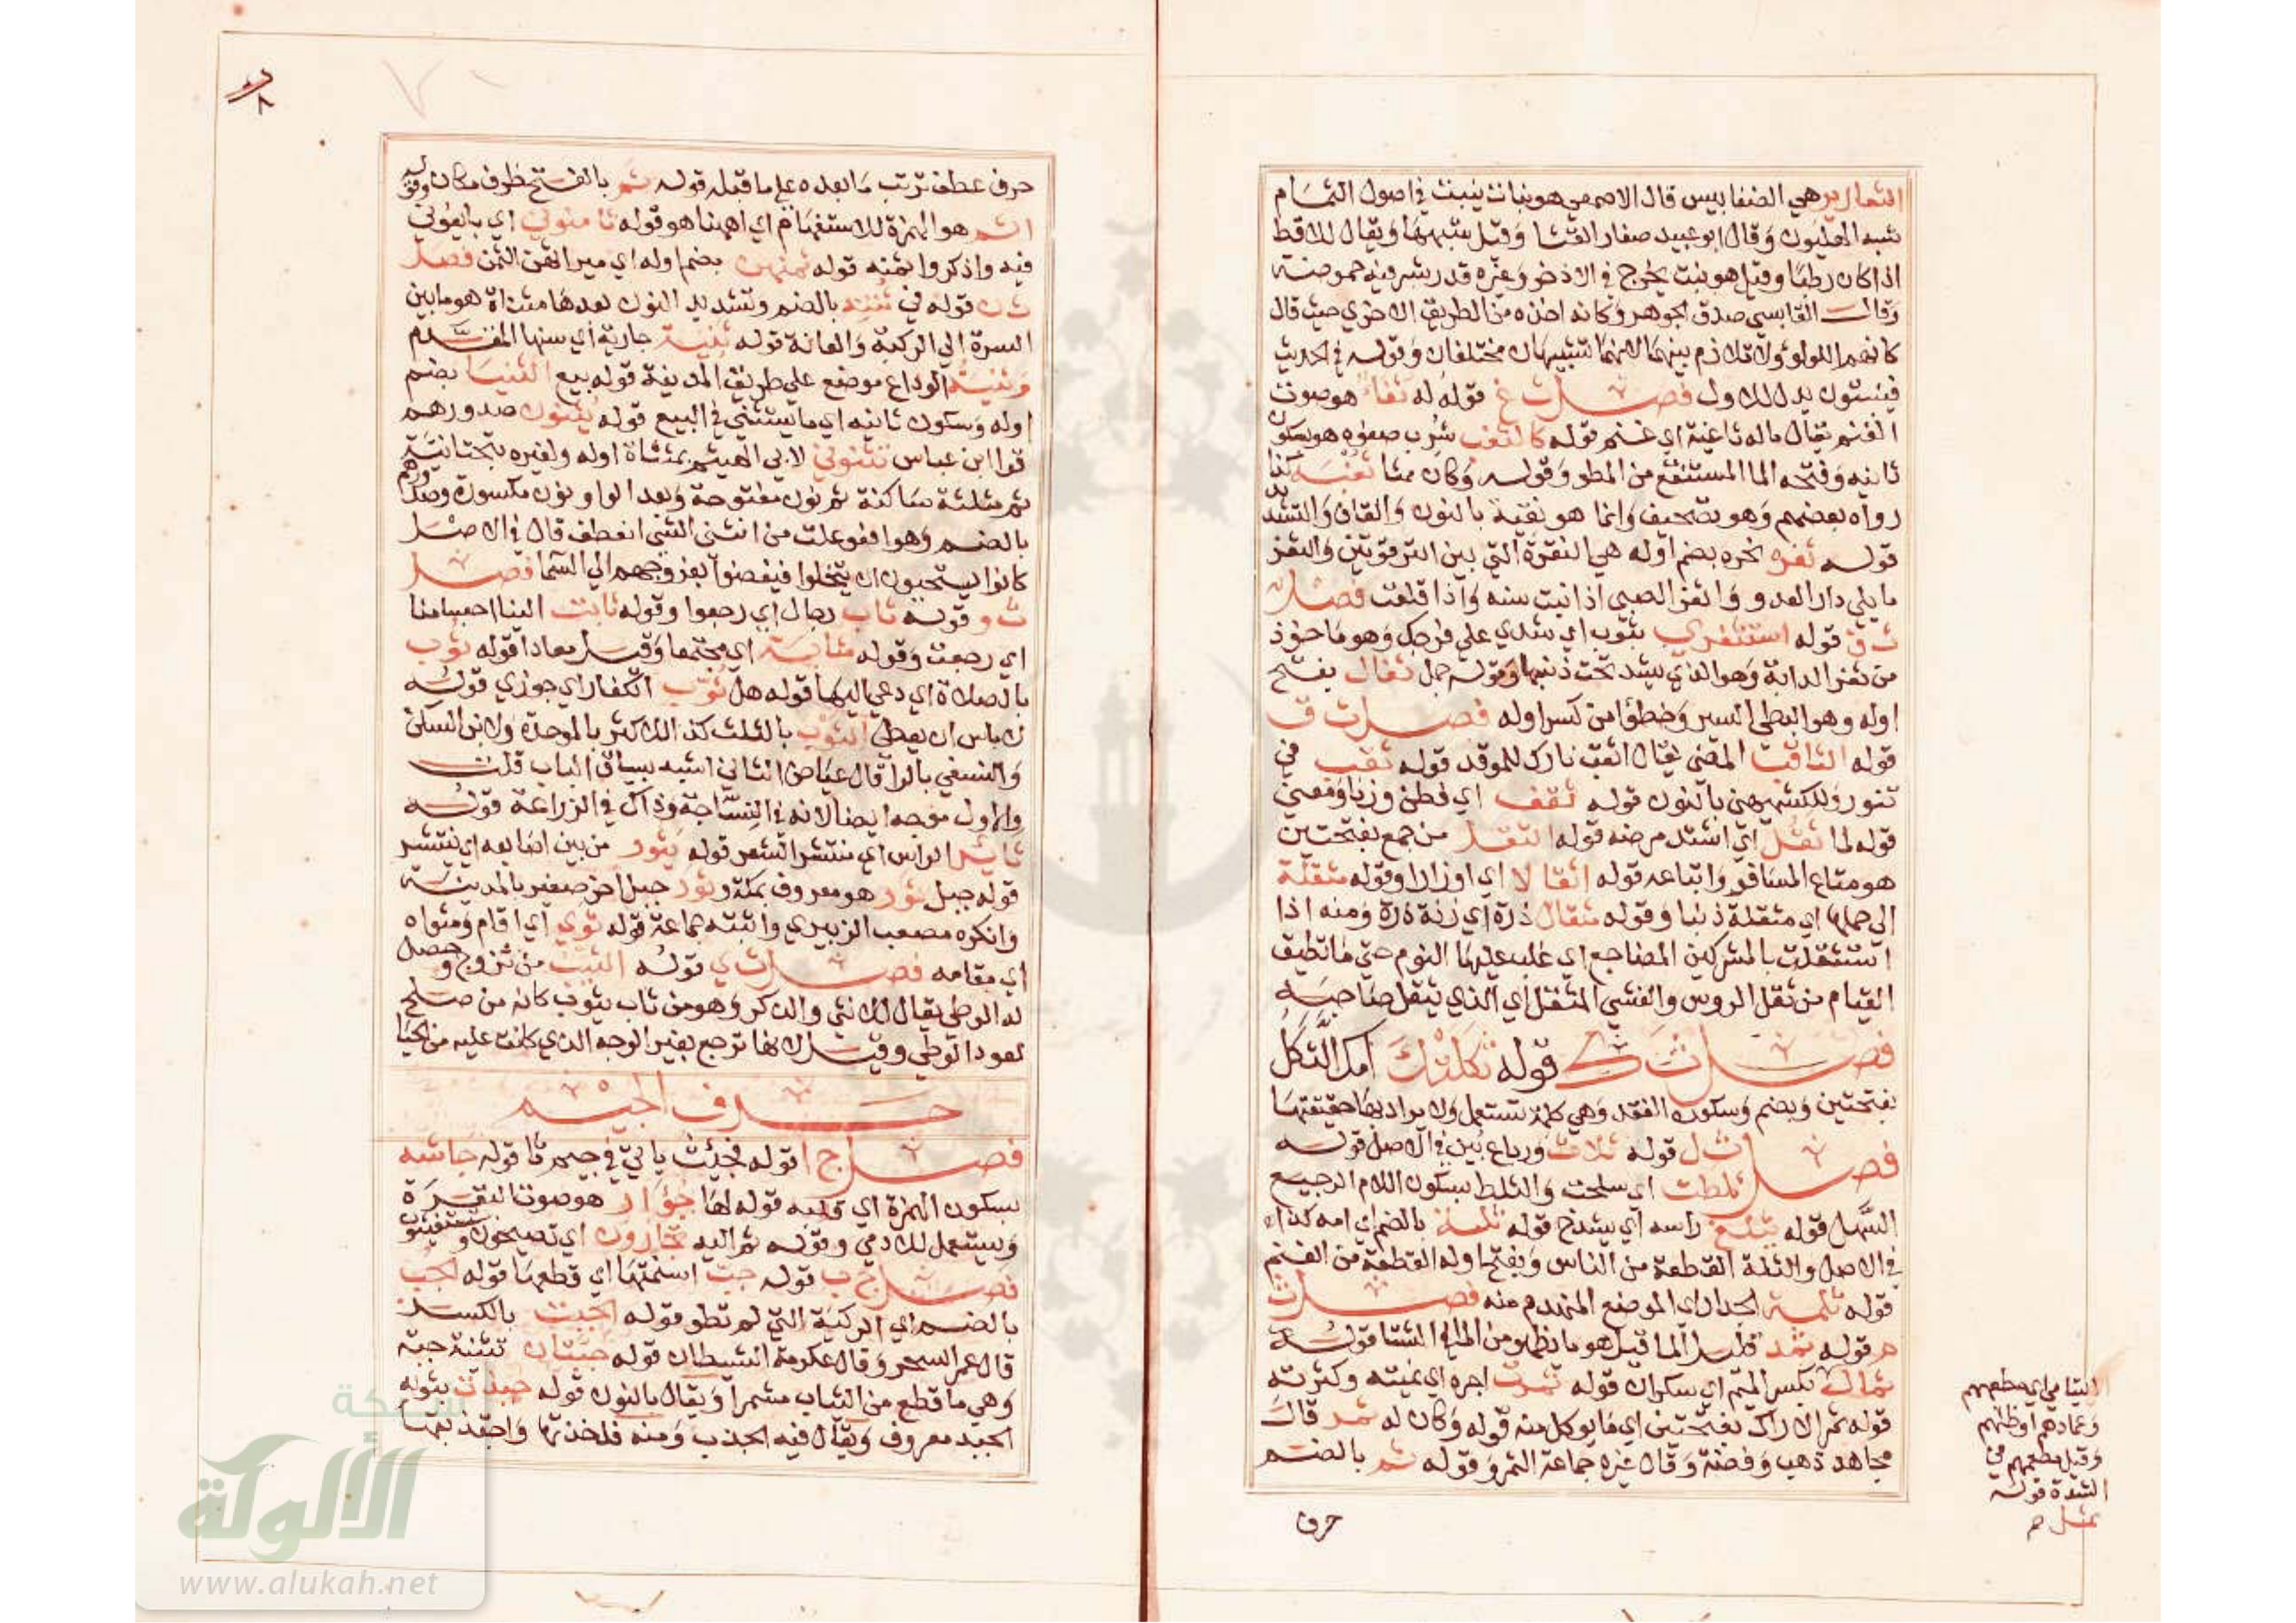 الثعارير هي الضغابيس قال الاصمعي هو نبات ينبت في اصول الثمام
شبه الهليون وقال ابو عبيد صغار القثا وقيل شبهها ويقال للاقط
اذا كان رطبا وقيل هو نبت يخرج في الاذخر وغيره قدر شبر فيه حموضة
وقال القابسي صدق الجوهر وكانه اخذه من الطريق الاخري حيث قال
كانهم اللولو ولا تلازم بينهما لانهما تشبيهان مختلفان وقوله في الحديث
فينبتون يدل للاول فصل ث غ قوله له ثغاء هو صوت
الغنم يقال ماله ثاغية اي غنم قوله كالثغب شرب صفوه هو بسكون
ثانيه وفتحه الما المستنقع من المطر وقوله وكان مثا ثغبة كذا
رواه بعضهم وهو تصحيف وانما هو نقية بالنون والقاف والتشديد
قوله ثغرة نحره بضم اوله هي النقرة التي بين الترقوتين والثغر
ما يلي دار العدو واثغر الصبي اذا نبت سنه واذا قلعت فصل
ث ف قوله استثفري بثوب اي شدي علي فرجك وهو ماخوذ
من ثفر الدابة وهو الذي يشد تحت ذنبها وقوله جمل ثفال بفتح
اوله وهو البطي السير وخطؤا من كسر اوله فصل ث ق
قوله الثاقب المضي يقال اثقب نارك للموقد قوله ثقب في
تنور وللكشميهني بالنون قوله ثقف اي فطن وزنا ومعني
قوله لما ثقل اي اشتد مرضه قوله الثقل من جمع بفتحتين
هو متاع المسافر واتباعه قوله اثقالا اي اوزارا وقوله مثقلة
الي حملها اي مثقلة ذنبا وقوله مثقال ذرة اي زنة ذرة ومنه اذا
استثقلت بالمشركين المضاجع اي غلب عليها النوم حتي ما تطيق
القيام من ثقل الروس والغشي المثقل اي الذي يثقل صاحبه
فصل ث ك قوله ثكلتك امك الثكل
بفتحتين وبضم وسكون الفقد وهي كلمة تستعمل ولا يراد بها حقيقتها
فصل ث ل قوله ثلاث ورباع بين في الاصل قوله
ثلطت اي سلحت والثلط بسكون اللام الرجيع
السهل قوله يثلغ راسه اي يشدخ قوله ثلة بالضم اي امه كذا
في الاصل والثلة القطعة من الناس وبفتح اوله القطعة من الغنم
قوله ثلمة الجدار اي الموضع المنهدم منه فصل ث
م قوله ثمد قليل الما قيل هو ما يظهر من الما في الشتا قوله
ثمال بكسر الميم اي سكران قوله ثمرت اجره اي نميته وكثرته
قوله ثمر الاراك بفتحتين اي ما يوكل منه قوله وكان له ثمر قال
مجاهد ذهب وفضة وقال غيره جماعة الثمر وقوله ثم بالضم
اليتامي اي مطعمهم
وعمادهم اوظلهم
وقيل مطعمهم في
الشدة قوله
ثمل م
حرف
حرف عطف ترتب ما بعده علي ما قبله قوله ثم بالفتح ظرف مكان وقوله
اثم هو الهمزة للاستفهام اي اههنا هو قوله ثامنوني اي بايعوني
فيه واذكروا ثمنه قوله ثمنهن بضم اوله اي ميراثهن الثمن فصل
ث ن قوله في ثنته بالضم وتشديد النون بعدها مثناة هو ما بين
السرة الي الركبة والعانة قوله ثنية جارية اي سنها المقدم
وثنية الوداع موضع علي طريق المدينة قوله بيع الثنيا بضم
اوله وسكون ثانيه اي ما يستثني في البيع قوله يثنون صدورهم
قرا ابن عباس تثنوني لابي الهيثم بمثناة اوله ولغيره بتحتانية
ثم مثلثة ساكنة ثم نون مفتوحة وبعد الواو نون مكسورة وصدورهم
بالضم وهو افعوعلت من انثني الشي انعطف قال في الاصل
كانوا يستحيون ان يتخلوا فيفضوا بفروجهم الي السما فصل
ث و قوله ثاب رجال اي رجعوا وقوله ثابت الينا اجسامنا
اي رجعت وقوله مثابة اي مجتمعا وقيل معادا قوله ثوب
بالصلاة اي دعي اليها قوله هل ثوب الكفار اي جوزي قوله
لا باس ان يعطي الثوب بالثلث كذا للاكثر بالموحدة ولابن السكن
والنسفي بالرا قال عياض الثاني اشبه بسياق الباب قلت
والاول موجه ايضا لانه في النساجة وذاك في الزراعة قوله
ثاير الراس اي منتشر الشعر قوله يثور من بين اصابعه اي ينتشر
قوله جبل ثور هو معروف بمكة وثور جبل اخر صغير بالمدينة
وانكره مصعب الزبيري واثبته جماعة قوله ثوي اي اقام ومثواه
اي مقامه فصل ث ي قوله الثيب من تزوج وحصل
له الوطي يقال للانثي والذكر وهو من ثاب يثوب كانه من صلح
لعود الوطي وقيل لانها ترجع بغير الوجه الذي كانت عليه من الحيا
حرف الجيم
فصل ج ا قوله فجئت ياتي في جيم ثا قوله جاشه
بسكون الهمزة اي قلبه قوله لها جؤار هو صوت البقرة
ويستعمل للادمي وقوله ثم اليه تجارون اي تصيحون وتستغيثون
فصل ج ب قوله جب اسنمتها اي قطعها قوله الجب
بالضم اي الركية التي لم تطو قوله الجبت بالكسر
قال عمر السحر وقال عكرمة الشيطان قوله جبتان تثنية جبة
وهي ما قطع من الثياب مشمرا ويقال بالنون قوله جبذت بثوبه
الجبذ معروف ويقال فيه الجذب ومنه فلخذتها واجتذبها
شبكة
الألوكة
www.alukah.net